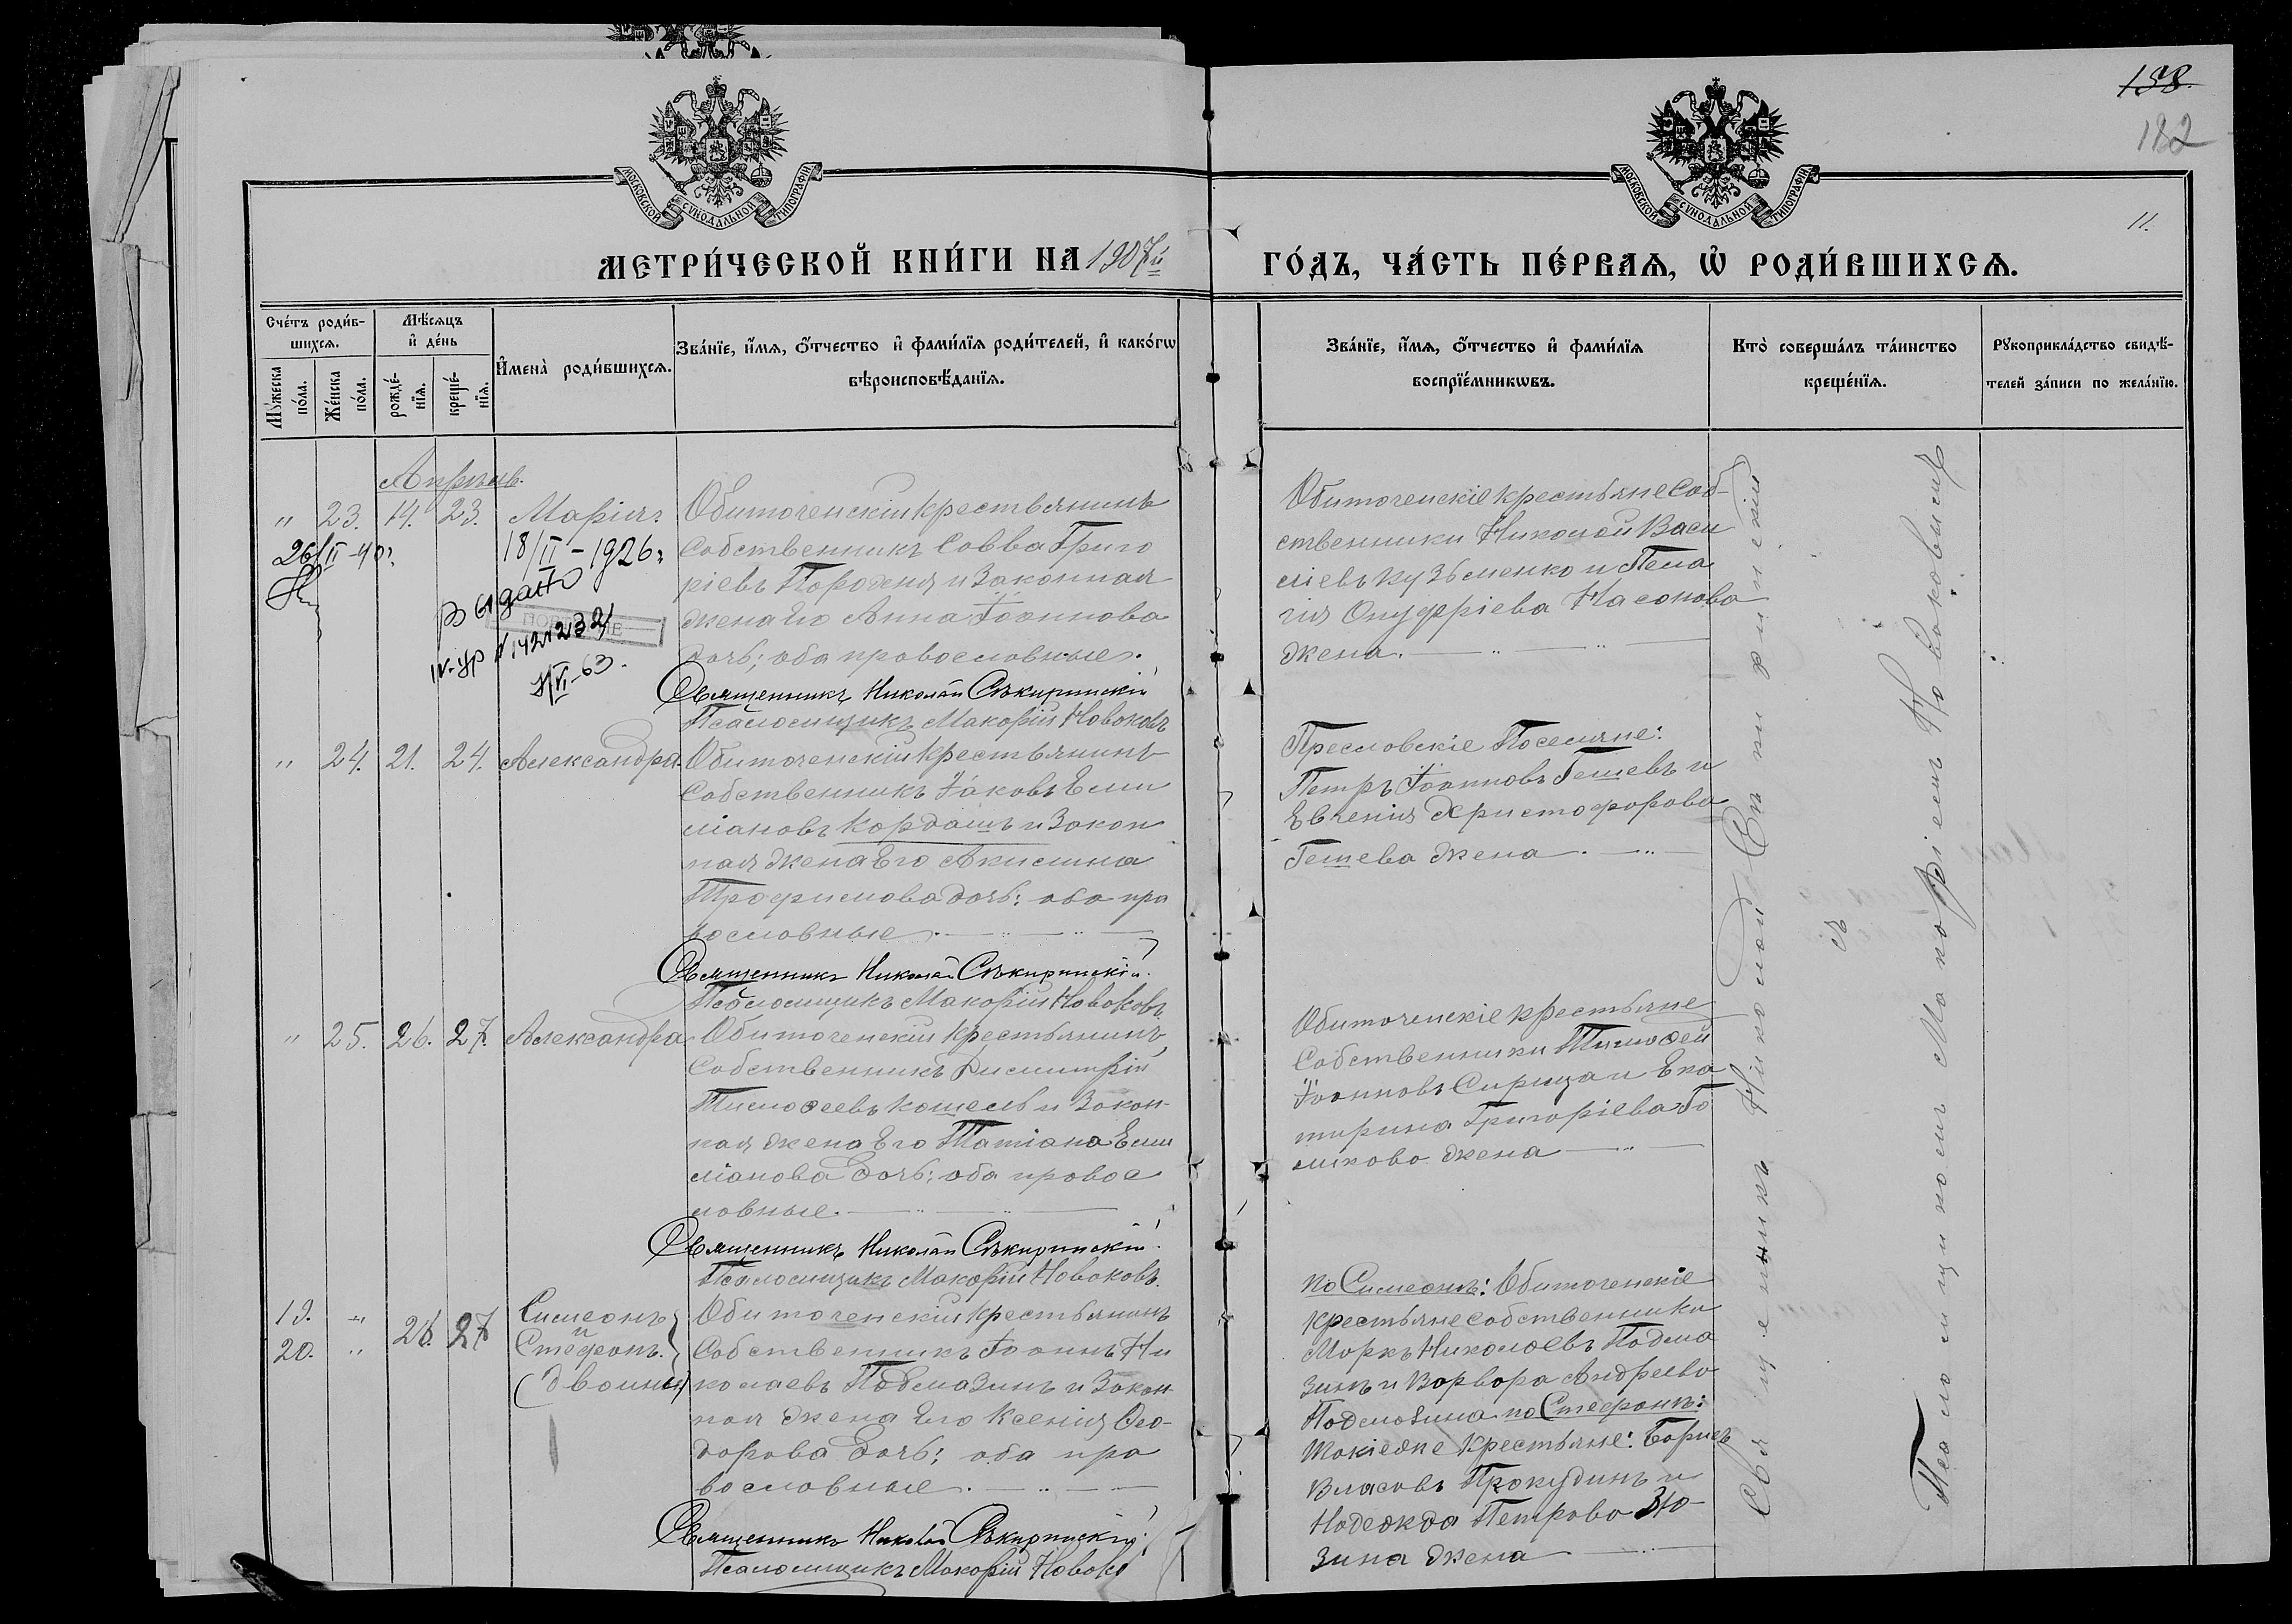 158.
182
11.
МОСКОВСКОЙ СѴНОДАЛЬНОЙ ТИПОГРАФІИ
МОСКОВСКОЙ СѴНОДАЛЬНОЙ ТИПОГРАФІИ
МЕТРИ́ЧЕСКОЙ КНИ́ГИ НА 1907й ГО́ДЪ, ЧА́СТЬ ПЕ́РВАѦ, Ѡ҆ РОДИ́ВШИХСѦ.
Сче́тъ роди́в-
шихсѧ.
Мꙋ́жеска
по́ла.
Же́нска
по́ла.
Мѣ́сѧцъ
и҆ де́нь
рожде́-
нїѧ.
креще́-
нїѧ.
И҆мена̀ роди́вшихсѧ.
Зва́нїе, и҆́мѧ, ѻ҆́тчество и҆ фами́лїѧ роди́телей, и҆ како́гѡ
вѣроисповѣ́данїѧ.
Зва́нїе, и҆́мѧ, ѻ҆́тчество и҆ фами́лїѧ
воспрїе́мникѡвъ.
Кто̀ соверша́лъ та́инство
креще́нїѧ.
Рꙋкоприкла́дство свидѣ́-
телей за́писи по жела́нїю.
Апрѣль.
" 23. 14. 23. Марія.
26/II-40г.
18/II-1926г.
Выдано
ПОВТОРНОЕ
№ 1421232
-63.
Обиточенскій крестьянинъ
собственникъ Савва Григо
ріевъ Порохня и законная
жена его Анна Іоаннова
дочь; оба православные.
Священникъ Николай Сѣкиринскій
Псаломщикъ Макарій Новаковъ
Обиточенскіе крестьяне соб-
ственники Николай Васи
ліевъ Кузьменко и Пела
гія Онуфріева Насонова
жена.
" 24. 21. 24. Александра
Обиточенскій крестьянинъ
собственникъ Іаковъ Еми
ліановъ Кардашъ и закон
ная жена его Акилина
Трофимова дочь; оба пра
вославные.
Священникъ Николай Сѣкиринскій.
Псаломщикъ Макарій Новаковъ.
Преславскіе Поселяне:
Петръ Іоанновъ Гешевъ и
Евгенія Христофорова
Гешева жена.
" 25. 26. 27. Александра
Обиточенскій крестьянинъ
собственникъ Димитрій
Тимоѳеевъ Кошель и закон-
ная жена его Татіана Еми
ліанова дочь; оба правос
лавные.
Священникъ Николай Сѣкиринскій.
Псаломщикъ Макарій Новаковъ.
Обиточенскіе крестьяне
собственники Тимоѳей
Іоанновъ Сирица и Ека
терина Григоріева
жена
19. "
20. "
26. 27
Симеонъ
и
Стефанъ.
(двойни)
Обиточенскій крестьянинъ
собственникъ Іоаннъ Ни
колаевъ Подмазинъ и закон-
ная жена его Ксенія Ѳео-
дорова дочь; оба пра
вославные.
Священникъ Николай Сѣкиринскій.
Псаломщикъ Макарій Новаковъ
по Симеонѣ: Обиточенскіе
крестьяне собственники
Маркъ Николаевъ Подма
зинъ и Варвара Андреева
Подмазина по Стефанѣ:
такіеже крестьяне: Борисъ
Власовъ Прокудинъ и
Надежда Петрова Зю-
зина жена
Священникъ Николай Сѣкиринскій
съ
Псаломщикомъ Макаріемъ Новаковымъ